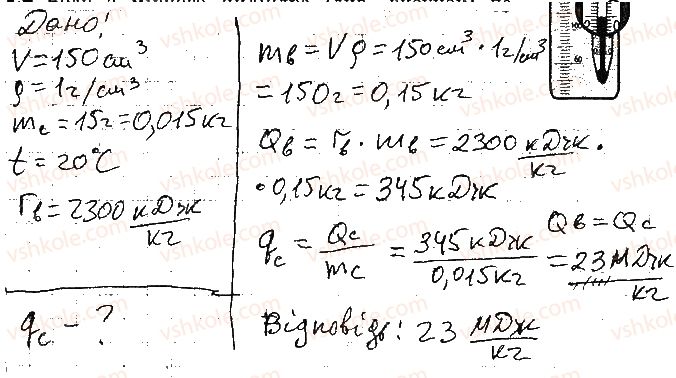 Дано!
V = 150 см³
ρ = 1г/см³
mс = 15г = 0,015кг
t = 20°C
rв = 2300 кДж/кг
qс - ?
mв = Vρ = 150 см³ · 1г/см³
= 150г = 0,15кг
Qв = rв · mв = 2300 кДж/кг ·
· 0,15кг = 345 кДж
Qв = Qс
qс = Qс/mс = 345 кДж/0,015кг = 23 МДж/кг
Відповідь: 23 МДж/кг
vshkole.com